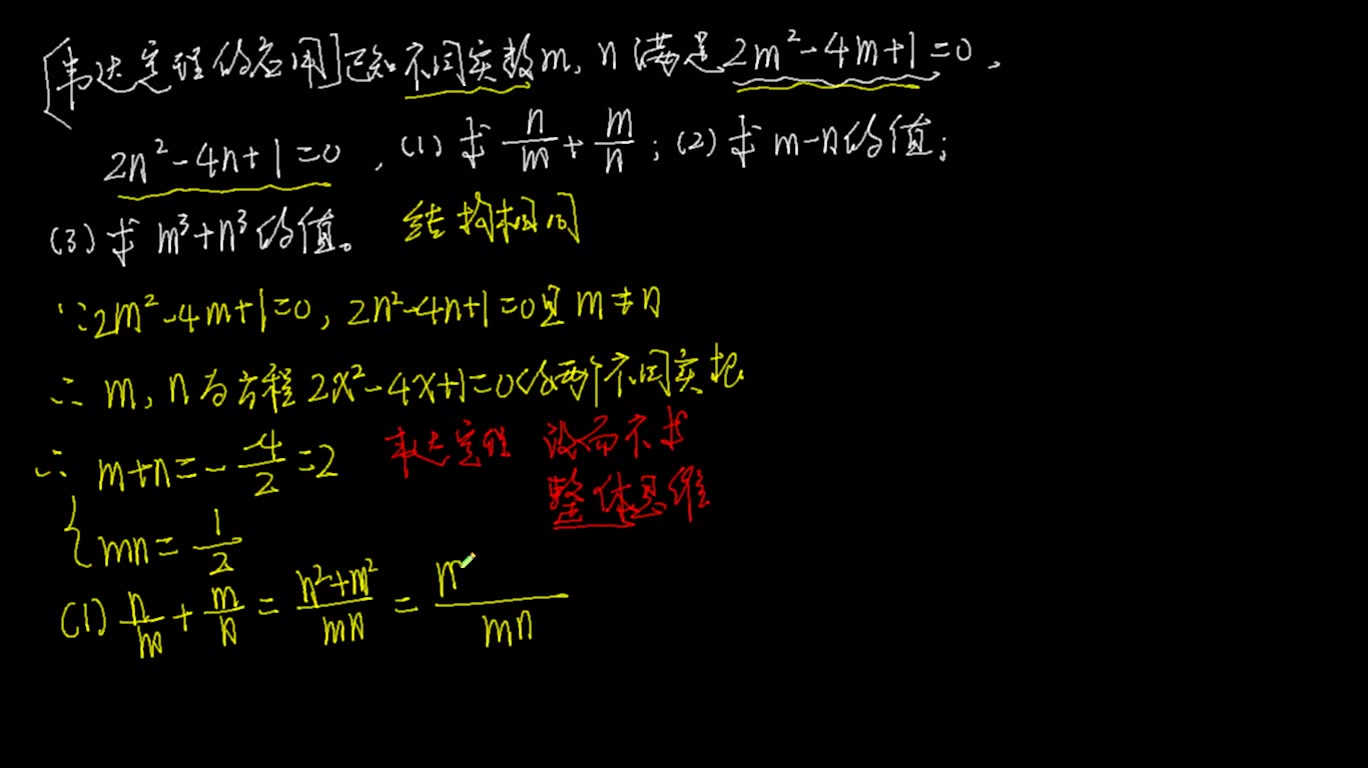 [韦达定理的应用]已知不同实数m, n满足2m²-4m+1=0,
2n²-4n+1=0, (1)求n/m+m/n; (2)求m-n的值;
(3)求m³+n³的值。 结构相同
∵2m²-4m+1=0, 2n²-4n+1=0且m≠n
∴m, n为方程2x²-4x+1=0的两个不同实根
∴{m+n=-(-4)/2=2 韦达定理 设而不求
整体思维
mn=1/2
(1) n/m+m/n=(n²+m²)/mn=(m)/mn